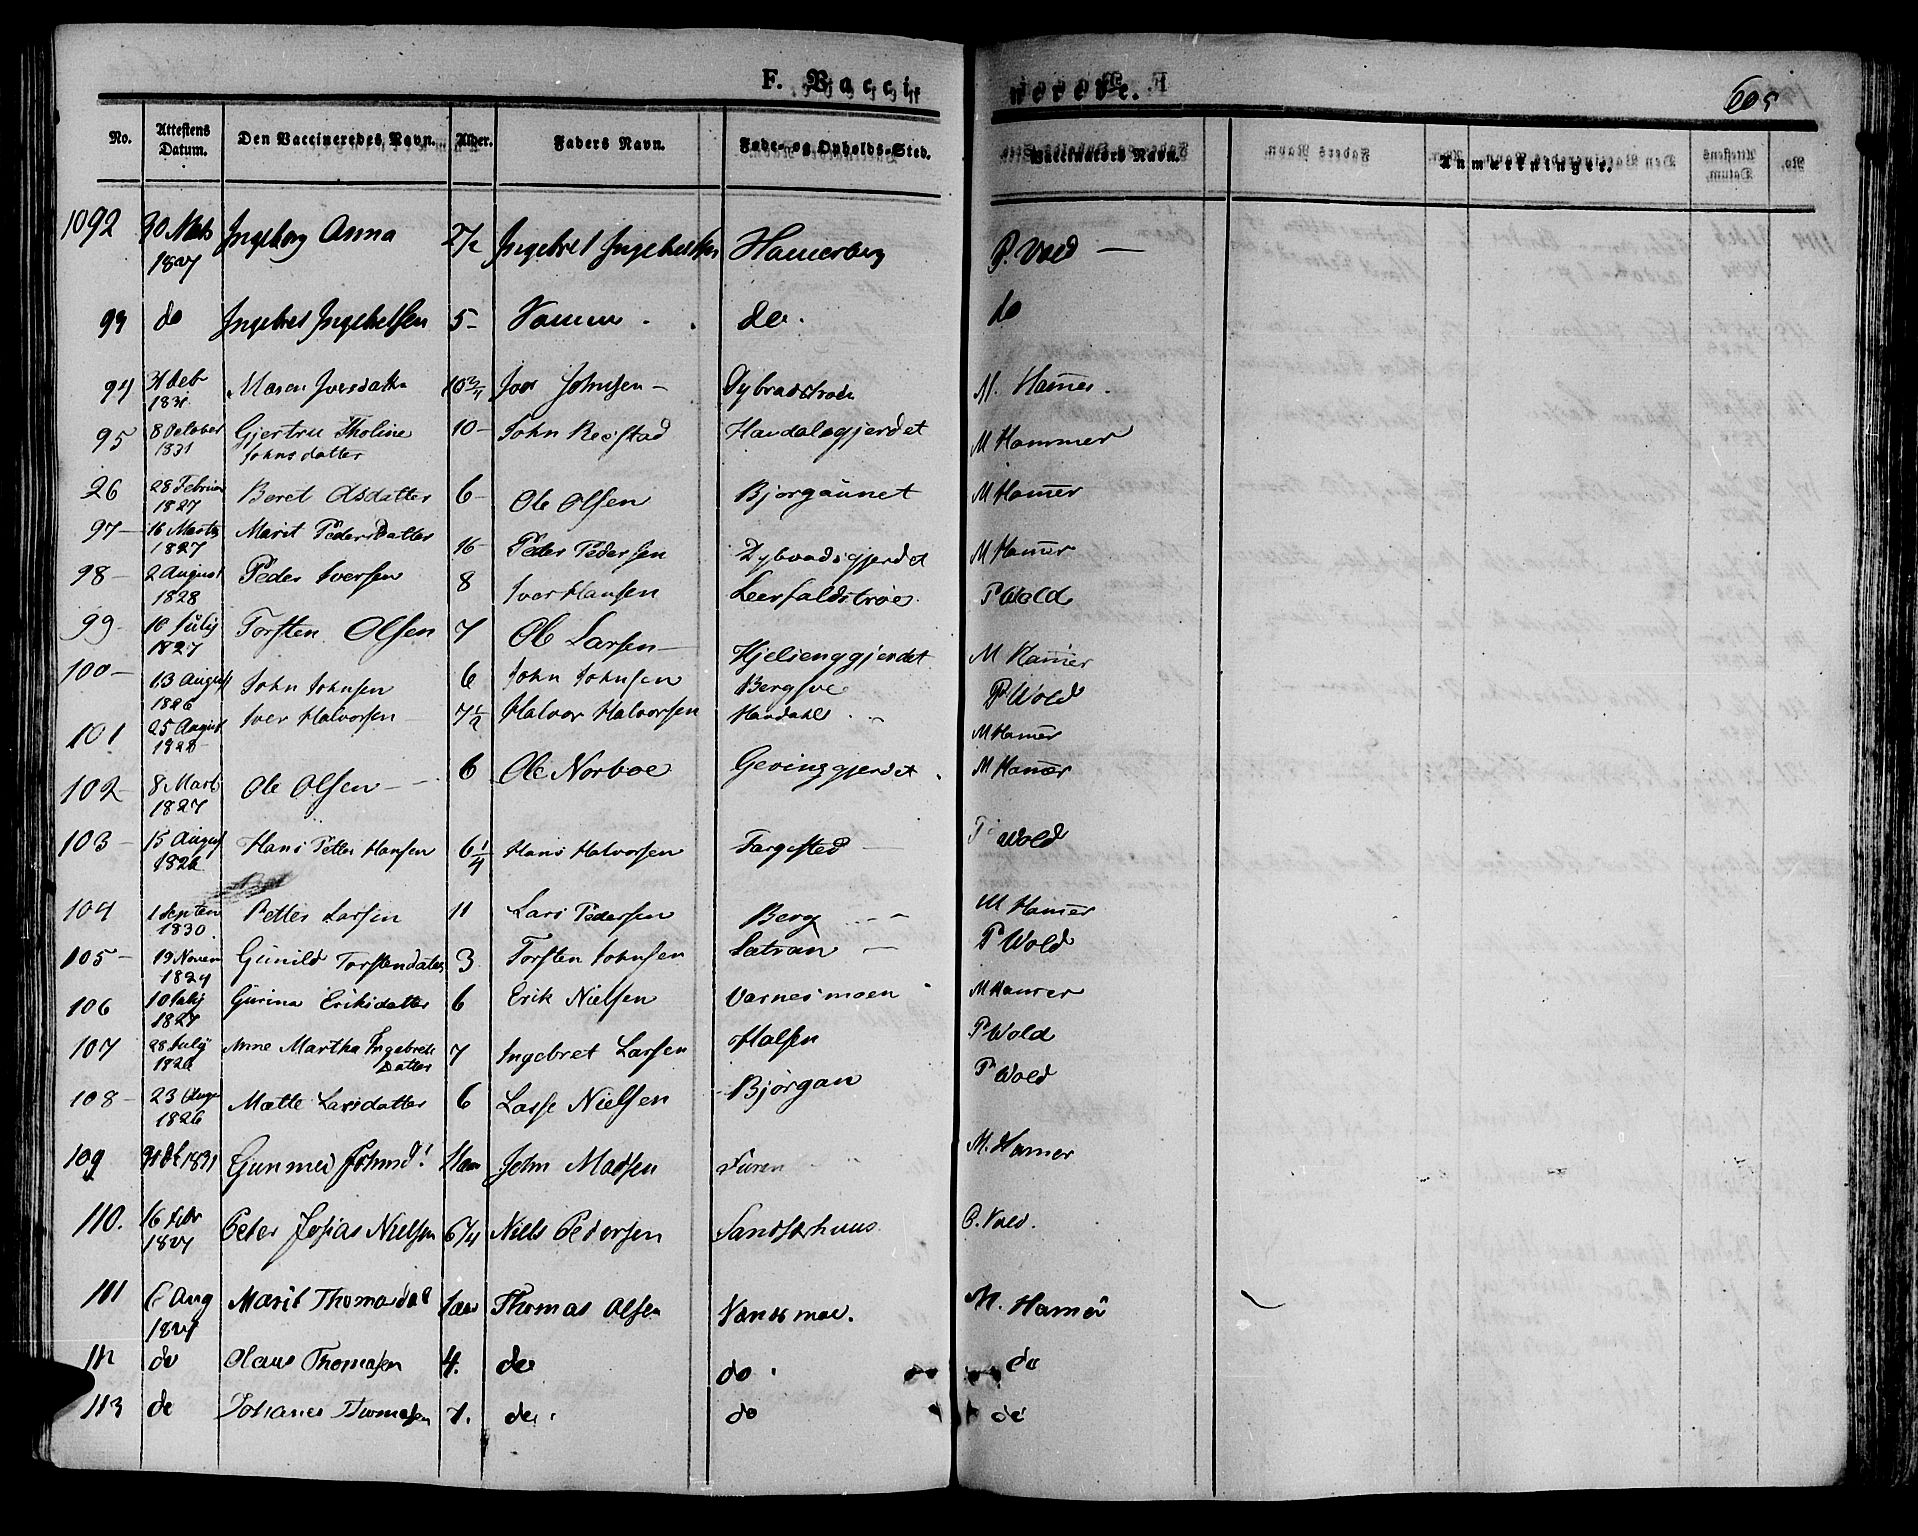 F. Vacci- nerede. 605
No. Attestens Datum. Den Vaccineredes Navn. Alder. Faders Navn. Føde- og Opholds-Sted. Vaccinators Navn. Anmærkninger.
1092 30 Marts 1827 Ingeborg Anna 2/2 Ingebret Hamerberg P. Vold —
93 do Ingebret Ingebretsen 5- Hamer do. do
94 31 1831 Maren Iversdatter 10 3/4 Iver Johnsen - M. Hamer.
95 8 October 1831 Gjertru Tholine Johnsdatter 10- John Reistad Havdalsgjerdet M Hammer
26 28 Februar 1827 Beret Olsdatter 6- Ole Olsen Bjorgaunet M Hamer
97- 16 Marts 1827 Marit PedersDatter 16- Peder Pedersen Dybvadsgjerdet M Hamer
98- 2 August 1828 Peder Iversen 8 Iver Hansen Leerfaldstrøe P Wold
99- 10 July 1827 Torsten Olsen 7 Ole Larsen - Hjelsenggjerdet M Hamer
100- 13 August 1826 John Johnsen 6 John Johnsen P. Wold
101 25 August 1828 Iver Halvorsen 7 1/2 Halvor Halvorsen Havdahl M Hamer
102 8 Marts 1827 Ole Olsen - 6 Ole Norboe Gevinggjerdet M Hamer
103- 15 August 1826 Hans Petter Hansen 6 1/4 Hans Halvorsen Fargested P Wold
104 1 Septem 1830 Petter Larsen 11 Lars Pedersen Berg M Hamer
105- 19 Novem 1824 Gunild Torstendatter 3 Torsten Johnsen Sætran - P Wold
106 10 July 1827 Gurina Eriksdatter 6 Erik Nielsen Værnesmoen M Hamer
107 28 July 1826 Anne Martha Ingebrets Datter 7 Ingebret Larsen Halsen P Wold
108- 23 Augu 1826 Mætte Larsdatter 6 Lasse Nielsen Bjørgan P Wold
109 1831 John Madsen M. Hamer
110. 16 Febr 1827 Peter Josias Nielsen 6/4 Niels Pedersen P. Vold.
111 6 Aug 1827 Marit Thomasdat 1 aar Thomas Olsen M. Hamer
112 do Olaus Thomasen 4. do do do
113 do Johanes Thomasen 7. do do do